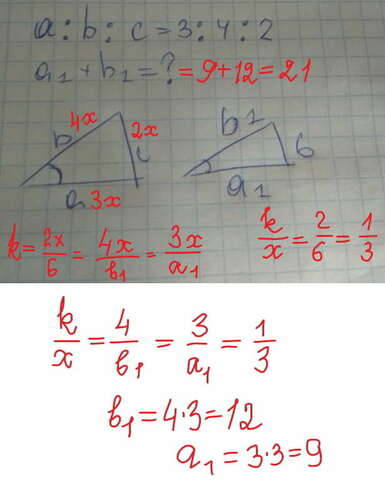 a : b : c = 3 : 4 : 2
a₁ + b₂ = ? = 9+12=21
b 4x 2x c
a 3x
b1 6
a1
k = 2x/6 = 4x/b₁ = 3x/a₁
k/x = 2/6 = 1/3
k/x = 4/b₁ = 3/a₁ = 1/3
b₁ = 4·3 = 12
a₁ = 3·3 = 9